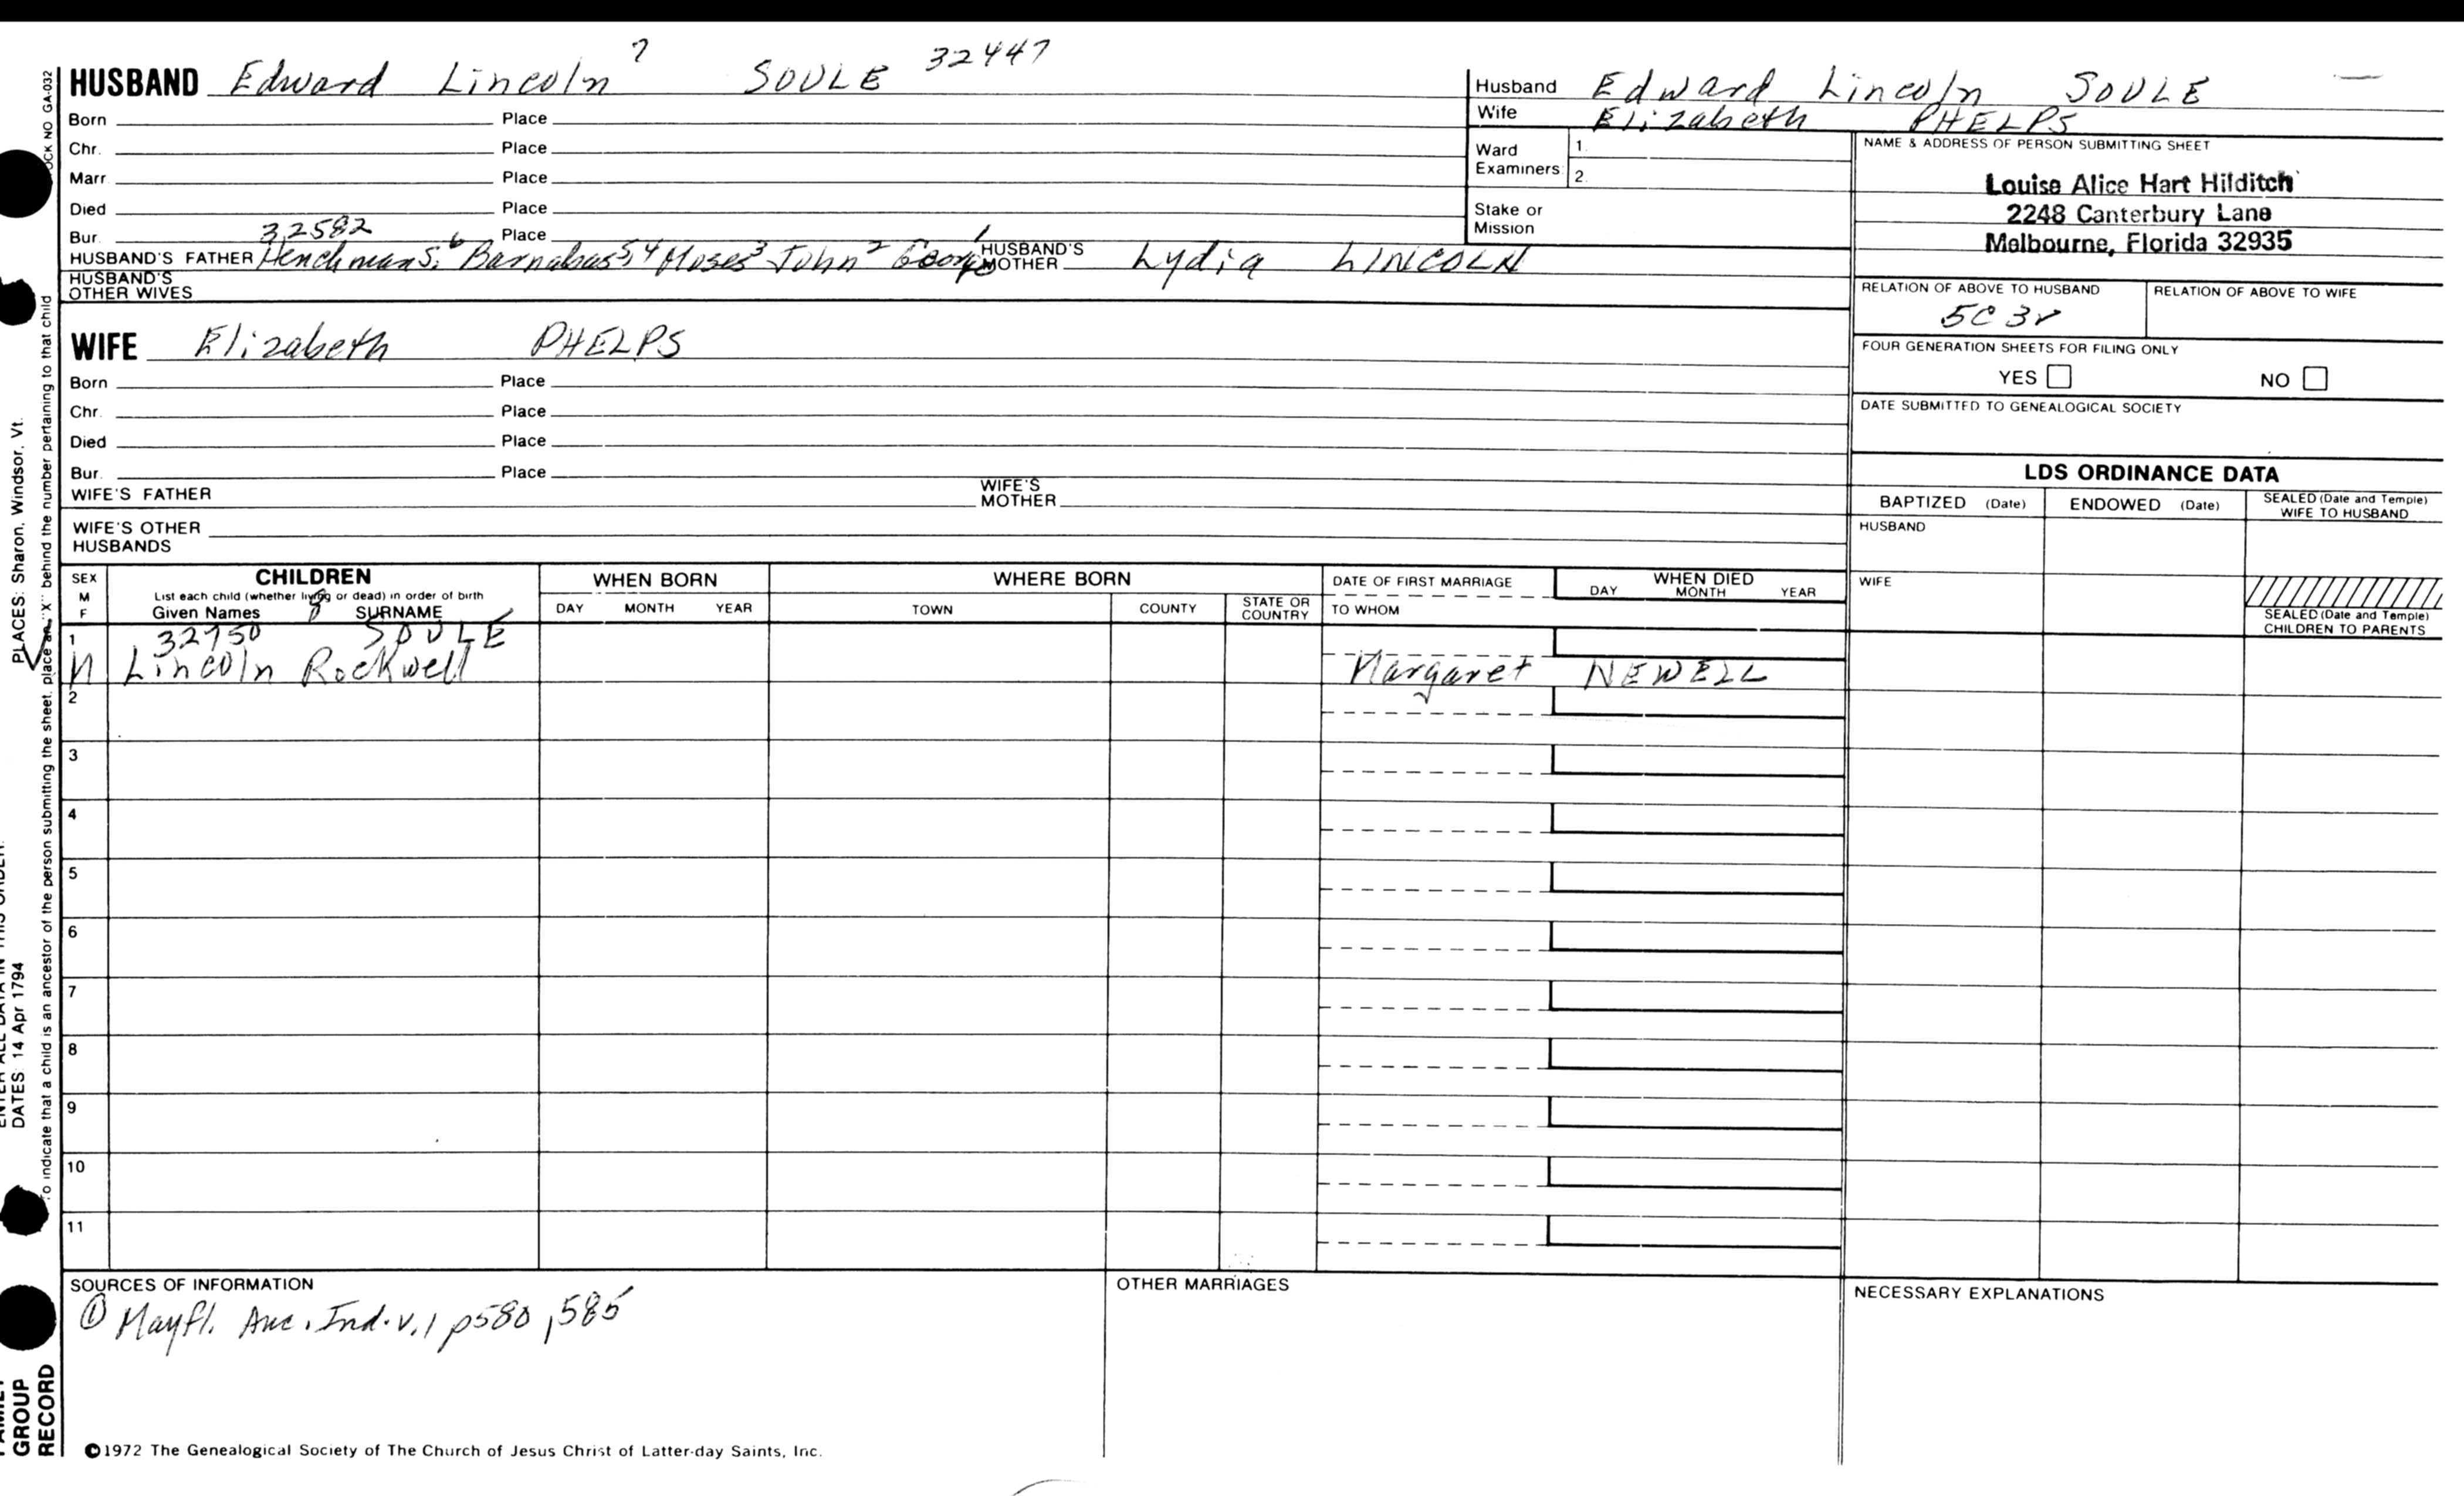 HUSBAND Edward Lincoln 7 SOULE 32447
Born Place
Chr. Place
Marr. Place
Died Place
Bur. 32582 Place
HUSBAND'S FATHER Henchman S. 6 Barnabas 5, 4 Moses 3 John 2 George 1 HUSBAND'S MOTHER Lydia LINCOLN
HUSBAND'S OTHER WIVES
WIFE Elizabeth PHELPS
Born Place
Chr. Place
Died Place
Bur. Place
WIFE'S FATHER WIFE'S MOTHER
WIFE'S OTHER HUSBANDS
Husband Edward Lincoln SOULE
Wife Elizabeth PHELPS
Ward Examiners: 1. 2.
Stake or Mission
NAME & ADDRESS OF PERSON SUBMITTING SHEET
Louise Alice Hart Hilditch
2248 Canterbury Lane
Melbourne, Florida 32935
RELATION OF ABOVE TO HUSBAND RELATION OF ABOVE TO WIFE
5C 3r
FOUR GENERATION SHEETS FOR FILING ONLY
YES NO
DATE SUBMITTED TO GENEALOGICAL SOCIETY
LDS ORDINANCE DATA
BAPTIZED (Date) ENDOWED (Date) SEALED (Date and Temple) WIFE TO HUSBAND
HUSBAND
WIFE
SEALED (Date and Temple) CHILDREN TO PARENTS
SEX M F
CHILDREN
List each child (whether living or dead) in order of birth
Given Names SURNAME
WHEN BORN
DAY MONTH YEAR
WHERE BORN
TOWN COUNTY STATE OR COUNTRY
DATE OF FIRST MARRIAGE
TO WHOM
WHEN DIED
DAY MONTH YEAR
1 32750 SOULE
M Lincoln Rockwell Margaret NEWELL
2
3
4
5
6
7
8
9
10
11
SOURCES OF INFORMATION
① Mayfl. Anc. Ind. v.1 p580, 585
OTHER MARRIAGES
NECESSARY EXPLANATIONS
©1972 The Genealogical Society of The Church of Jesus Christ of Latter-day Saints, Inc.
OCK NO GA-032
To indicate that a child is an ancestor of the person submitting the sheet, place an "X" behind the number pertaining to that child
PLACES: Sharon, Windsor, Vt.
ENTER ALL DATA IN THIS ORDER:
DATES: 14 Apr 1794
FAMILY GROUP RECORD